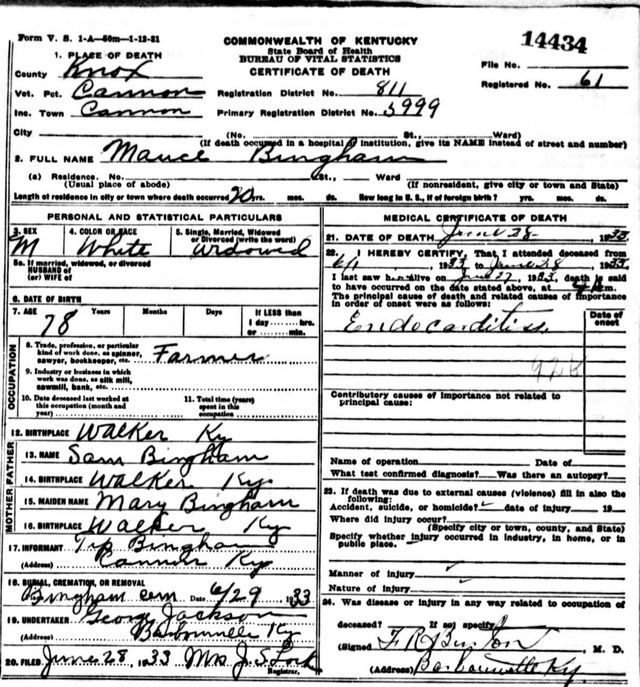 Form V. S. 1-A—50m—1-12-31
COMMONWEALTH OF KENTUCKY
State Board of Health
BUREAU OF VITAL STATISTICS
CERTIFICATE OF DEATH
14434
File No.
Registered No. 61
1. PLACE OF DEATH
County Knox
Vot. Pct. Cannon
Inc. Town Cannon
City
Registration District No. 811
Primary Registration District No. 5999
(No. St., Ward)
(If death occurred in a hospital or institution, give its NAME instead of street and number)
2. FULL NAME Bingham
(a) Residence. No. St., Ward
(Usual place of abode)
(If nonresident, give city or town and State)
Length of residence in city or town where death occurred 20 yrs. mos. ds. How long in U. S., if of foreign birth? yrs. mos. ds.
PERSONAL AND STATISTICAL PARTICULARS
3. SEX M
4. COLOR OR RACE White
5. Single, Married, Widowed or Divorced (write the word) Widowed
5a. If married, widowed, or divorced
HUSBAND of
(or) WIFE of
6. DATE OF BIRTH
7. AGE 78 Years Months Days
If LESS than
1 day hrs.
or min.
OCCUPATION
8. Trade, profession, or particular kind of work done, as spinner, sawyer, bookkeeper, etc. Farmer
9. Industry or business in which work was done, as silk mill, sawmill, bank, etc.
10. Date deceased last worked at this occupation (month and year)
11. Total time (years) spent in this occupation
12. BIRTHPLACE Walker Ky
FATHER
13. NAME Sam Bingham
14. BIRTHPLACE Walker Ky
MOTHER
15. MAIDEN NAME Mary Bingham
16. BIRTHPLACE Walker Ky
17. INFORMANT Tip Bingham
(Address) Cannon Ky
18. BURIAL, CREMATION, OR REMOVAL
Bingham cem Date 6/29 1933
19. UNDERTAKER George Jackson
(Address) Barbourville Ky
20. FILED June 28, 1933 Mrs J. S. Lock
Registrar.
MEDICAL CERTIFICATE OF DEATH
21. DATE OF DEATH June 28 1933
22. I HEREBY CERTIFY, That I attended deceased from
6/1 1933 to June 28, 1933
I last saw him alive on June 27, 1933, death is said
to have occurred on the date stated above, at m.
The principal cause of death and related causes of importance
in order of onset were as follows:
Date of onset
Endocarditis
92b
Contributory causes of importance not related to
principal cause:
Name of operation Date of
What test confirmed diagnosis? Was there an autopsy?
23. If death was due to external causes (violence) fill in also the
following:
Accident, suicide, or homicide? date of injury 19
Where did injury occur?
(Specify city or town, county, and State)
Specify whether injury occurred in industry, in home, or in
public place.
Manner of injury
Nature of injury
24. Was disease or injury in any way related to occupation of
deceased? If so, specify
(Signed) F R Burton M. D.
(Address) Barbourville Ky.